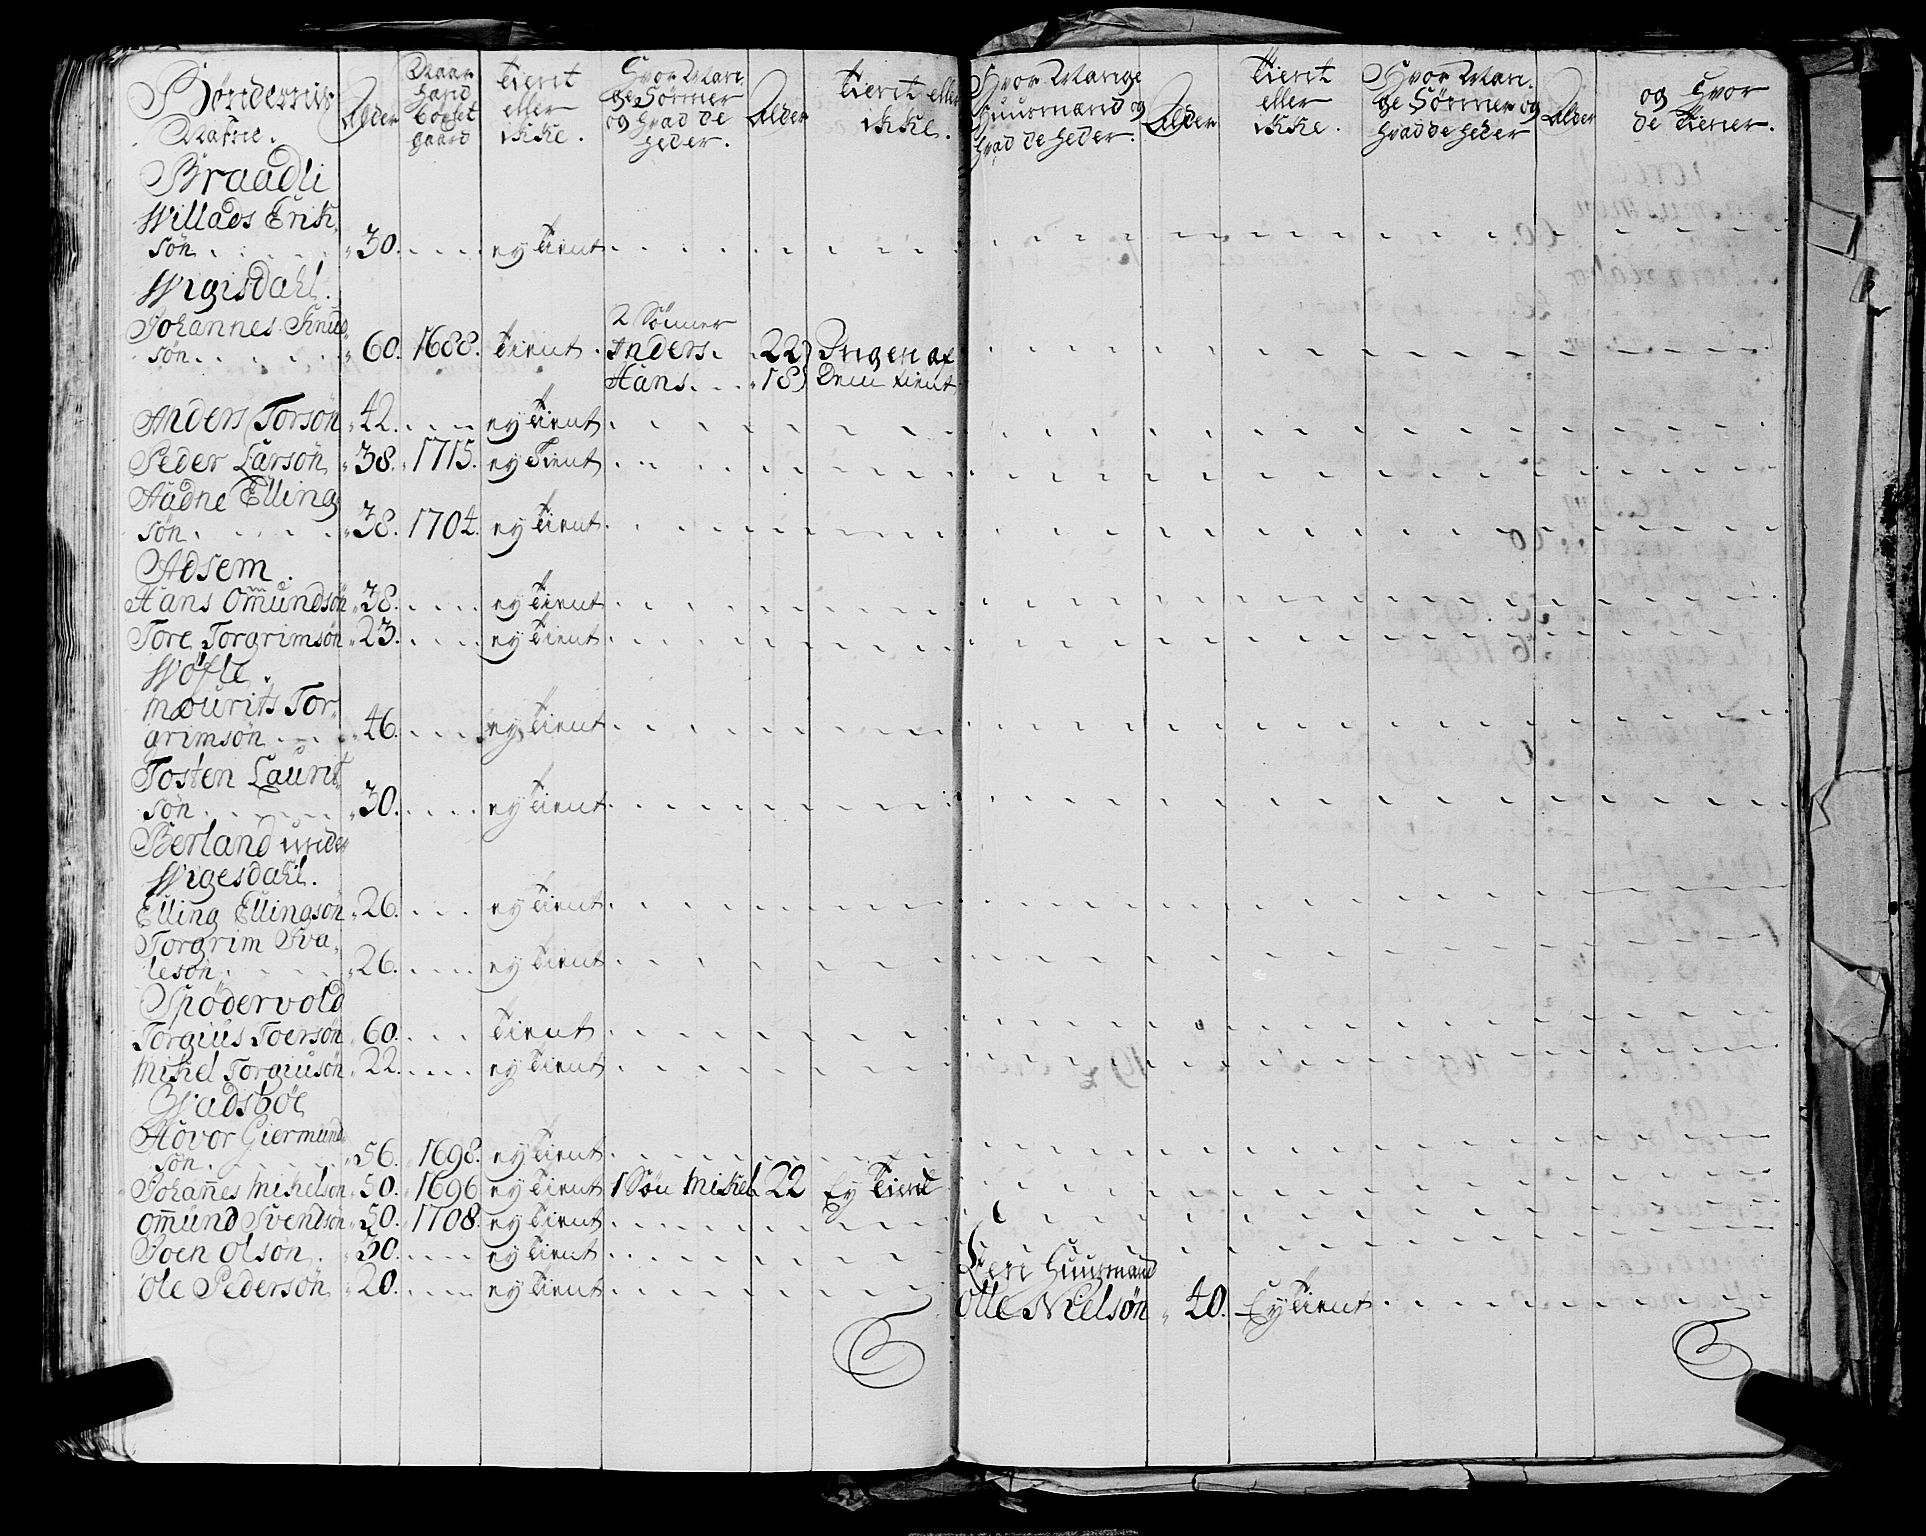 Bøndernis Nafne. Alder Naar hand boxlet gaard Tient eller ikke. Hvor Mange Sønner og hvad de heder. Alder Tient eller ikke. Hvor Mange Huusmænd og hvad de heder. Alder Tient eller ikke. Hvor Mange Sønner og hvad de heder Alder og hvor de tiener.
Braadli
Willads Erich
søn . . . 30. . . . ey Tient
Wigisdahl.
Johannes Knud 2 Sønner
søn . . . 60. 1688. Tient. Anders. 22) Ingen af
Hans. . . 18) Dem tient
Anders Torsøn 42. . . . ey Tient
Peder Larsøn 38. 1715. ey Tient
Aadne Elling
søn . . . 38. 1704. ey Tient
Adsem.
Hans Omundsøn 38. . . . ey Tient
Tore Torgrimsøn 23. . . . ey Tient
Wofle.
Mourits Tor
grimsøn . . . 46. . . . ey Tient
Tosten Laurit
søn . . . 30. . . . ey Tient
Berland under
Wigesdahl.
Elling Ellingsøn 26. . . . ey Tient
Torgrim Sva
lesøn . . . 26. . . . ey Tient
Spødervold
Torgius Toersøn 60. . . . Tient
Mikel Torgiusøn 22. . . . ey Tient
Giadsbøe
Haavor Giermund
søn . . . 56. 1698. ey Tient
Johannes Mikelsøn 50. 1696 ey Tient 1 Søn Mikel 22 Ey Tient
Omund Svendsøn 50. 1708. ey Tient
Joen Olsøn . 30. . . . ey Tient
Een Huusmand
Ole Pedersøn 20. . . . ey Tient Olle Nielsøn 40. Ey Tient